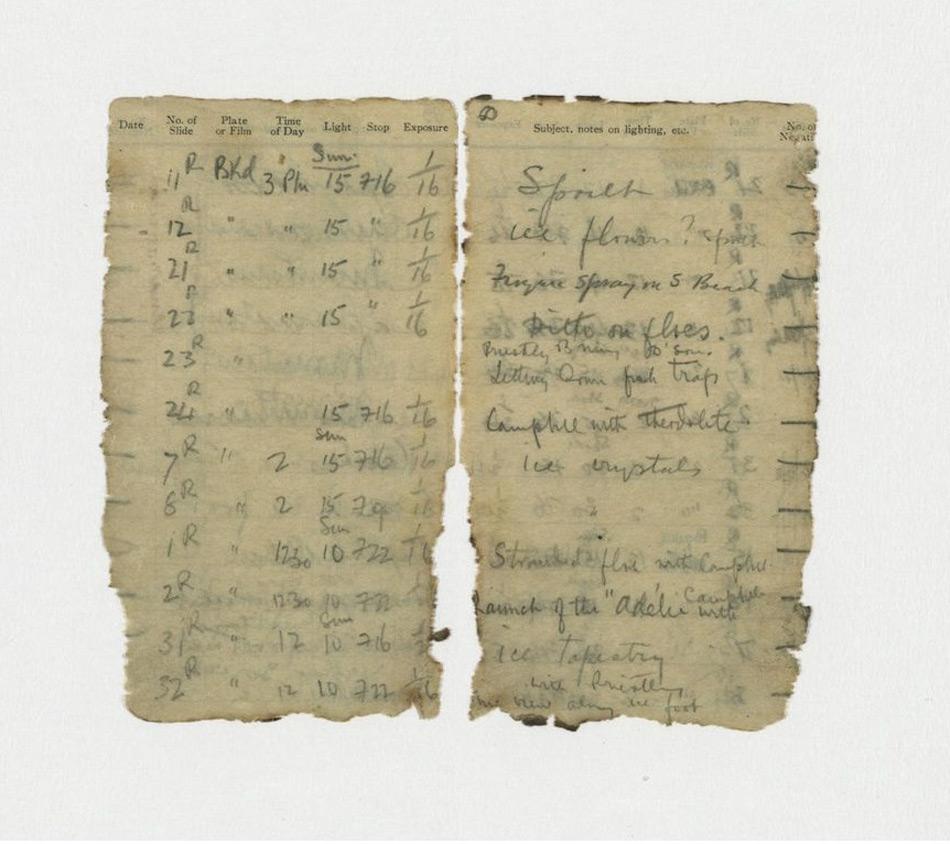 Date No. of Slide Plate or Film Time of Day Light Stop Exposure
Sun.
11R Bkd 3 PM 15 F16 1/16
12R " " 15 " 1/16
21R " " 15 " 1/16
22R " " 15 " 1/16
23R "
24R " 15 F16 1/16
Sun
7R " 2 15 F16 1/16
8R " 2 15 1/16
Sun
1R " 1230 10 F22 1/16
2R " 1230 10 F22
Sun
31R " 12 10 F16
32R " 12 10 F22 1/16
Subject, notes on lighting, etc. No. of
ice flowers?
Spray on S Beach
Ditto on floes.
Priestley
Letting Down fish traps
Campbell with theodolite.
ice crystals
Stranded floe with Campbell
Launch of the "Adélie" with Campbell
ice Tapestry
with Priestley
view along ice foot